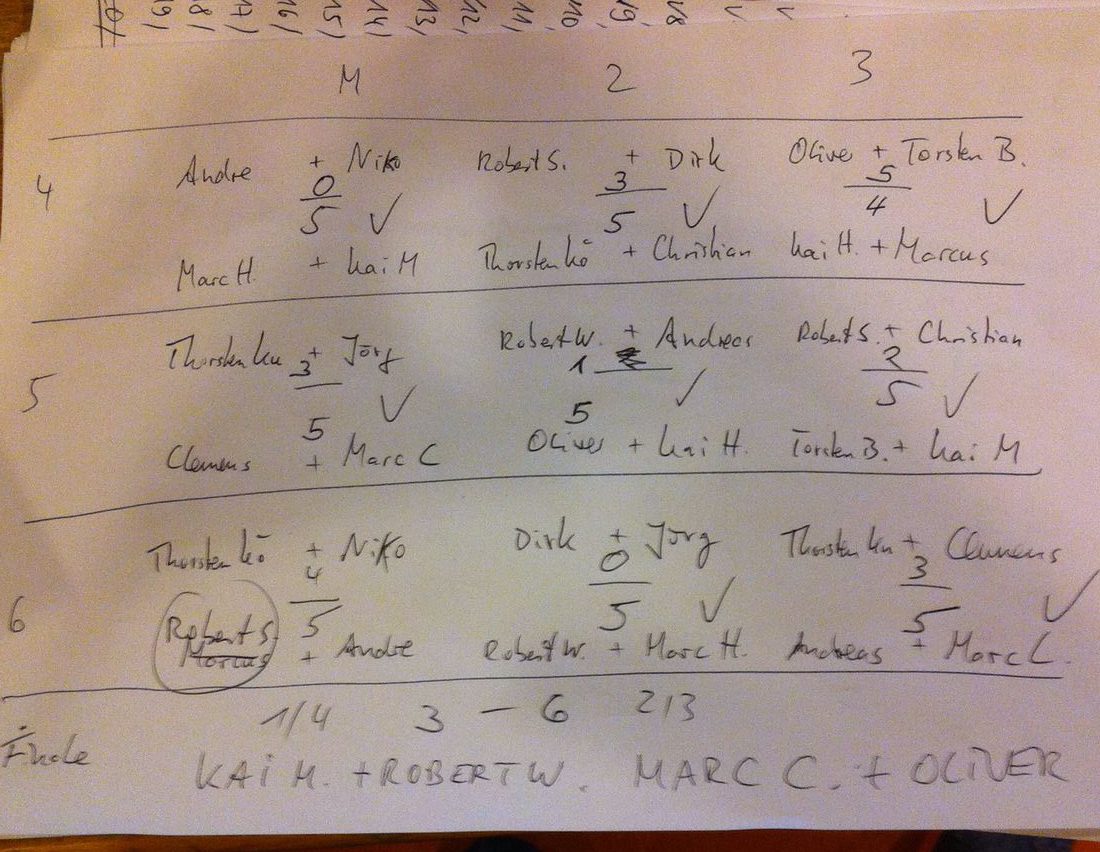 19) 18) 17) 16) 15) 14) 13) 12) 11) 10) 9) 8)
M 2 3
Andre + Niko Robert S. + Dirk Oliver + Torsten B.
4 0 3 5
5 ✓ 5 ✓ 4 ✓
Marc H. + Kai M Thorsten Kö + Christian Kai H. + Marcus
Thorsten Ku + Jörg Robert W. + Andreas Robert S. + Christian
3 1 2
5 ✓ ✓ 5 ✓
5 5
Clemens + Marc C Oliver + Kai H. Torsten B. + Kai M
Thorsten Kö + Niko Dirk + Jörg Thorsten Ku + Clemens
4 0 3
6 5 5 ✓ 5 ✓
Robert S
Marcus + Andre Robert W. + Marc H. Andreas + Marc C.
1/4 3 – 6 2/3
Finale
KAI M. + ROBERT W. MARC C. + OLIVER